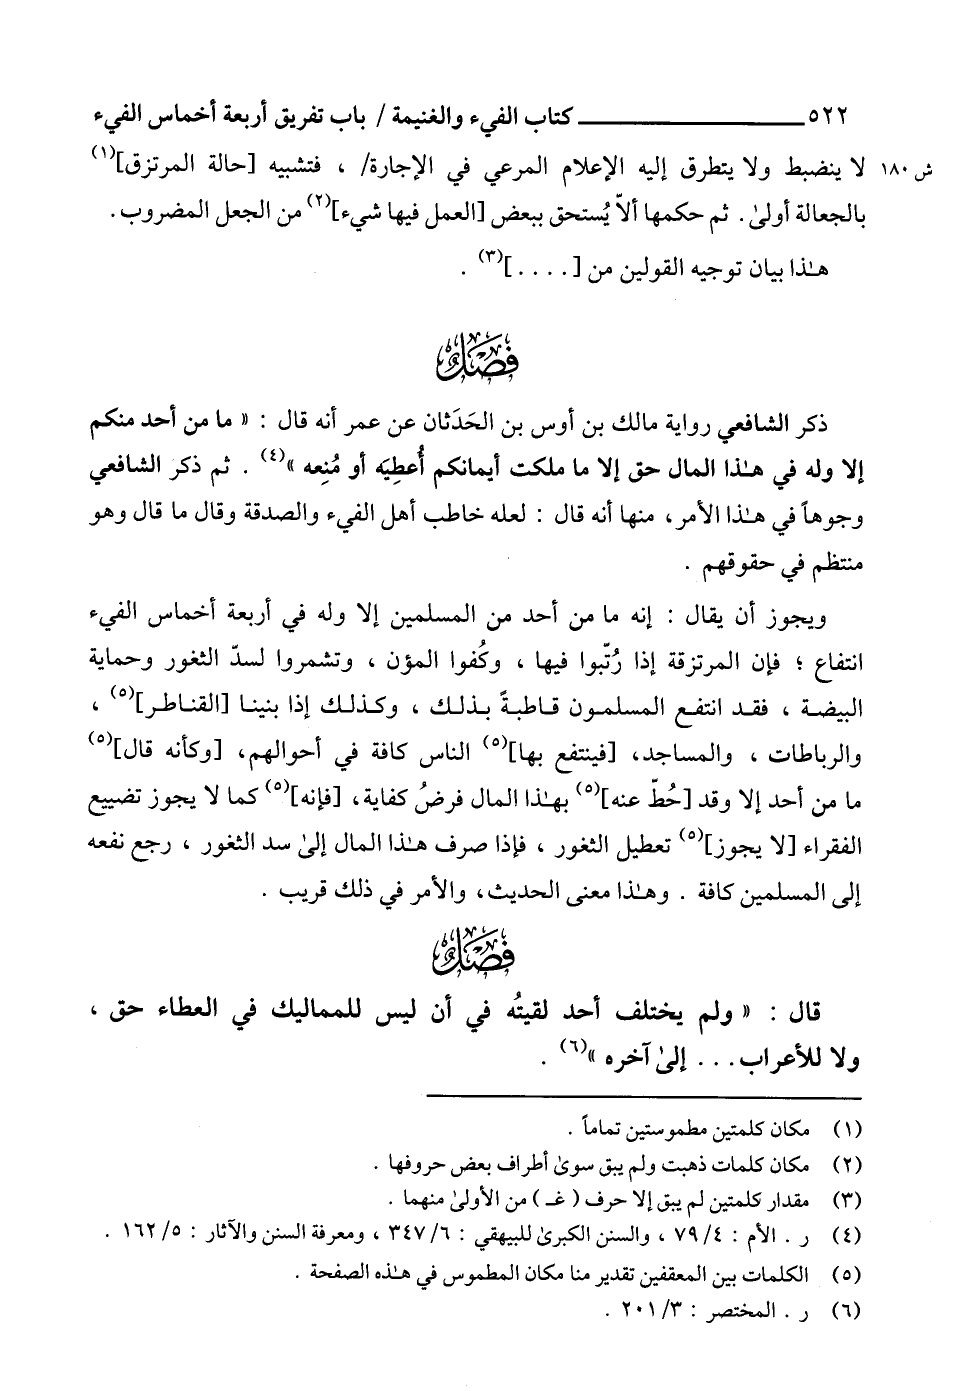 ٥٢٢ ــــــــــــــــ كتاب الفيء والغنيمة / باب تفريق أربعة أخماس الفيء
ش ١٨٠ لا ينضبط ولا يتطرق إليه الإعلام المرعي في الإجارة/ ، فتشبيه [حالة المرتزق](١)
بالجعالة أولىٰ. ثم حكمها ألاّ يُستحق ببعض [العمل فيها شيء](٢) من الجعل المضروب.
هـٰذا بيان توجيه القولين من [ . . . . ](٣) .
فصل
ذكر الشافعي رواية مالك بن أوس بن الحَدَثان عن عمر أنه قال : « ما من أحد منكم
إلا وله في هـٰذا المال حق إلا ما ملكت أيمانكم أُعطِيَه أو مُنِعه »(٤) . ثم ذكر الشافعي
وجوهاً في هـٰذا الأمر، منها أنه قال : لعله خاطب أهل الفيء والصدقة وقال ما قال وهو
منتظم في حقوقهم .
ويجوز أن يقال : إنه ما من أحد من المسلمين إلا وله في أربعة أخماس الفيء
انتفاع ؛ فإن المرتزقة إذا رُتِّبوا فيها ، وكُفوا المؤن ، وتشمروا لسدّ الثغور وحماية
البيضة ، فقد انتفع المسلمون قاطبةً بذلك ، وكذلك إذا بنينا [القناطر](٥) ،
والرباطات ، والمساجد، [فينتفع بها](٥) الناس كافة في أحوالهم، [وكأنه قال](٥)
ما من أحد إلا وقد [حُطّ عنه](٥) بهـٰذا المال فرضُ كفاية، [فإنه](٥) كما لا يجوز تضييع
الفقراء [لا يجوز](٥) تعطيل الثغور ، فإذا صرف هـٰذا المال إلىٰ سد الثغور ، رجع نفعه
إلى المسلمين كافة . وهـٰذا معنى الحديث، والأمر في ذلك قريب .
فصل
قال : « ولم يختلف أحد لقيتُه في أن ليس للمماليك في العطاء حق ،
ولا للأعراب. . . إلىٰ آخره »(٦) .
(١) مكان كلمتين مطموستين تماماً .
(٢) مكان كلمات ذهبت ولم يبق سوىٰ أطراف بعض حروفها .
(٣) مقدار كلمتين لم يبق إلا حرف ( غـ ) من الأولىٰ منهما .
(٤) ر . الأم : ٤/ ٧٩ ، والسنن الكبرىٰ للبيهقي : ٦/ ٣٤٧ ، ومعرفة السنن والآثار : ٥/ ١٦٢ .
(٥) الكلمات بين المعقفين تقدير منا مكان المطموس في هـٰذه الصفحة .
(٦) ر . المختصر : ٣/ ٢٠١ .